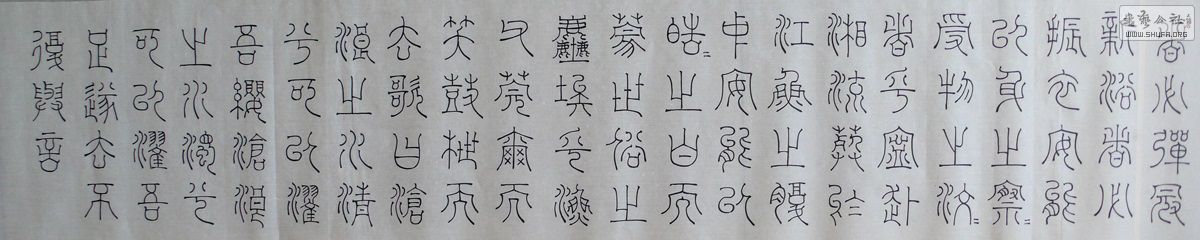 者必彈冠
新浴者必
振衣安能
以身之察〻
受物之汶〻
者乎寧赴
湘流葬於
江魚之腹
中安能以
皓〻之白而
蒙世俗之
塵埃乎漁
父莞爾而
笑鼓枻而
去歌曰滄
浪之水清
兮可以濯
吾纓滄浪
之水濁兮
可以濯吾
足遂去不
復與言
書藝公社
WWW.SHUFA.ORG